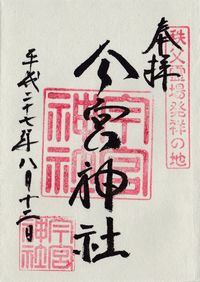 秩父霊場発祥の地
奉拝
今宮神社
今宮神社
平成二十七年八月十三日
今宮神社